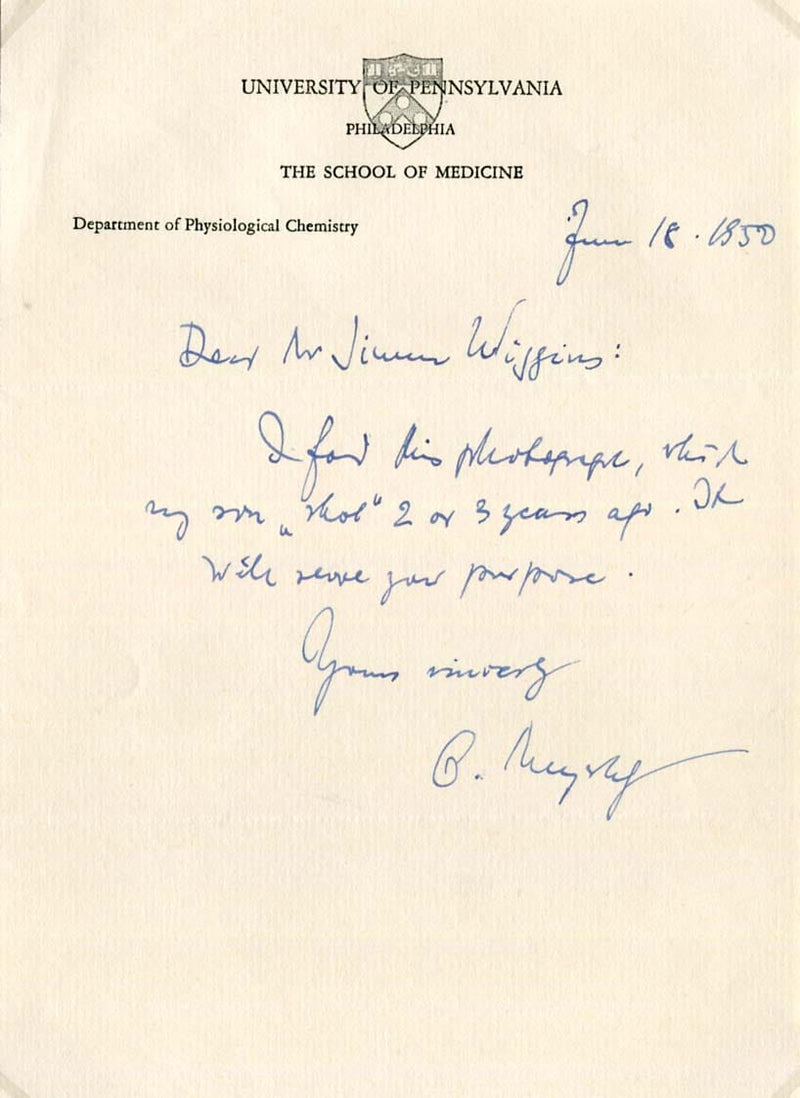 UNIVERSITY OF PENNSYLVANIA
PHILADELPHIA
THE SCHOOL OF MEDICINE
Department of Physiological Chemistry
June 18 . 1950
Dear Mr Wiggins:
I found this photograph, which
my son „shot“ 2 or 3 years ago. It
will serve your purpose.
Yours sincerely
O. Meyerhof